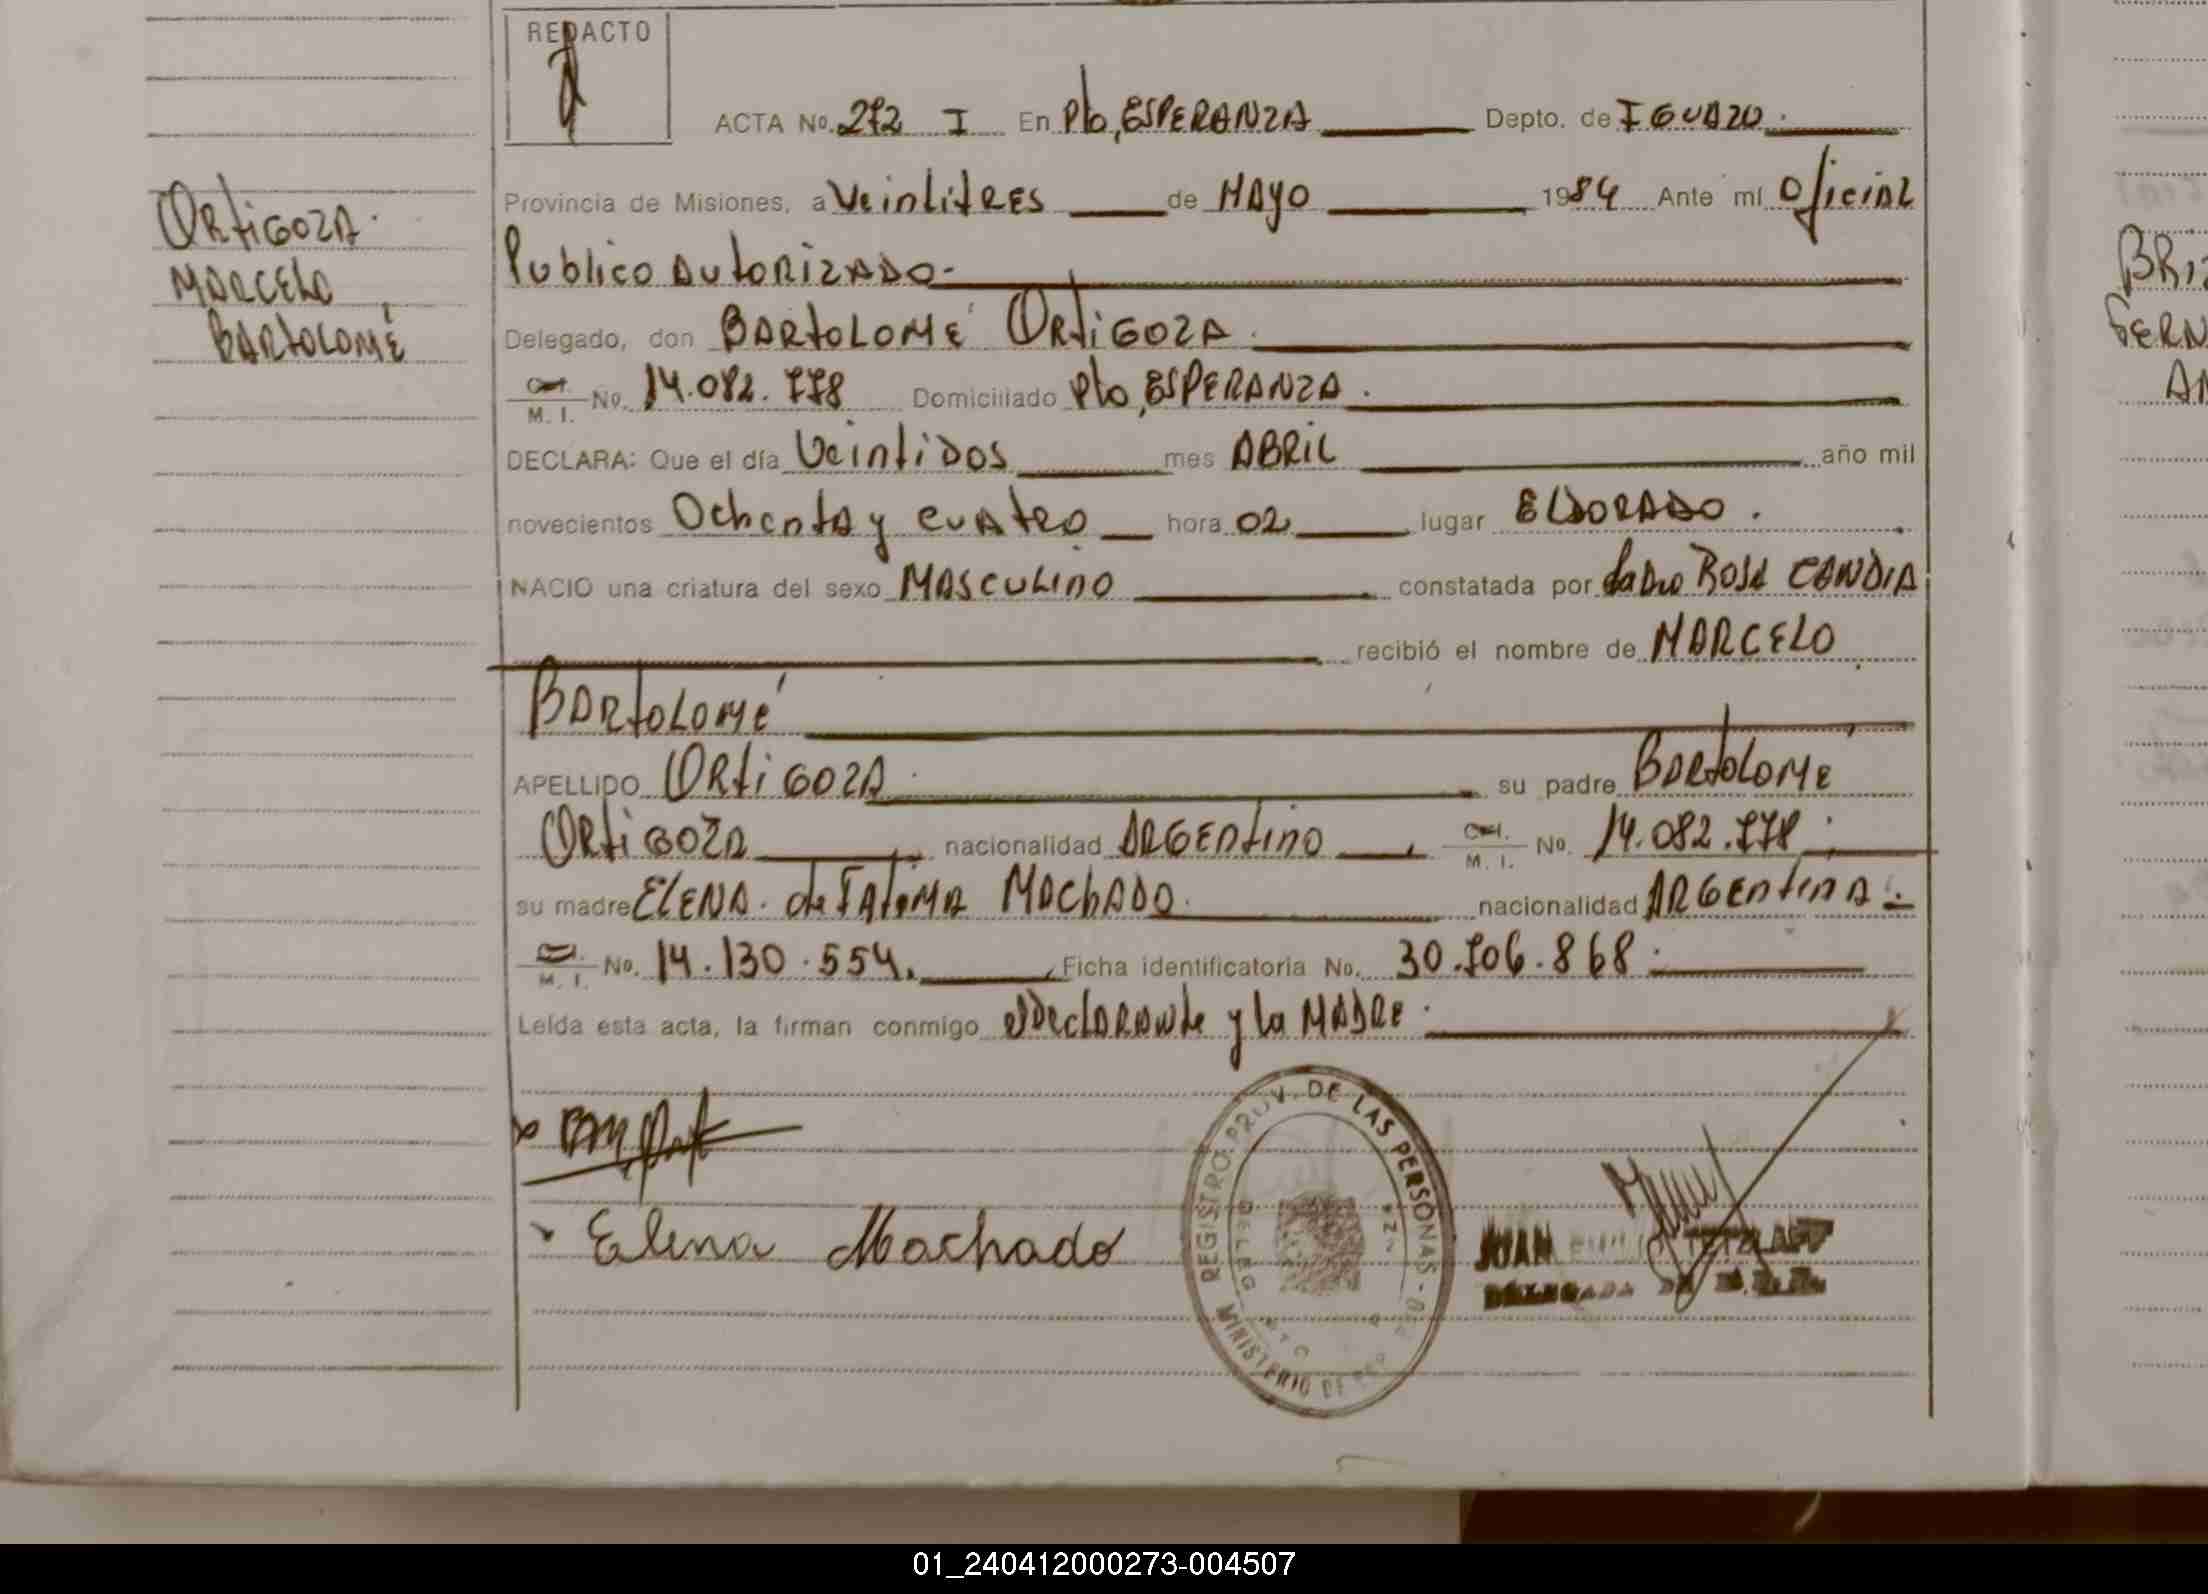 REDACTO
ACTA No. 272 I En Pto, ESPERANZA Depto. de IGUAZU.
Provincia de Misiones, a Veintitres de MAYO 1984 Ante mí Oficial
Publico AUTORIZADO-
Delegado, don BARTOLOMÉ ORTIGOZA.
C. I. / M. I. No. 14.082.778 Domiciliado Pto, ESPERANZA.
DECLARA: Que el día Veintidos mes ABRIL año mil
novecientos Ochenta y cuatro hora 02 lugar ELDORADO.
NACIO una criatura del sexo MASCULINO constatada por ROSA CANDIA
recibió el nombre de MARCELO
BARTOLOMÉ
APELLIDO ORTIGOZA. su padre BARTOLOMÉ
ORTIGOZA nacionalidad ARGENTINO C. I. / M. I. No. 14.082.778.
su madre ELENA. de FATIMA MACHADO. nacionalidad ARGENTINA.
C. I. / M. I. No. 14.130.554. Ficha identificatoria No. 30.706.868.
Leída esta acta, la firman conmigo el DECLARANTE y la MADRE.
Elena Machado
REGISTRO PROV. DE LAS PERSONAS
MINISTERIO DE
JUAN
ORTIGOZA.
MARCELO
BARTOLOMÉ
01_240412000273-004507